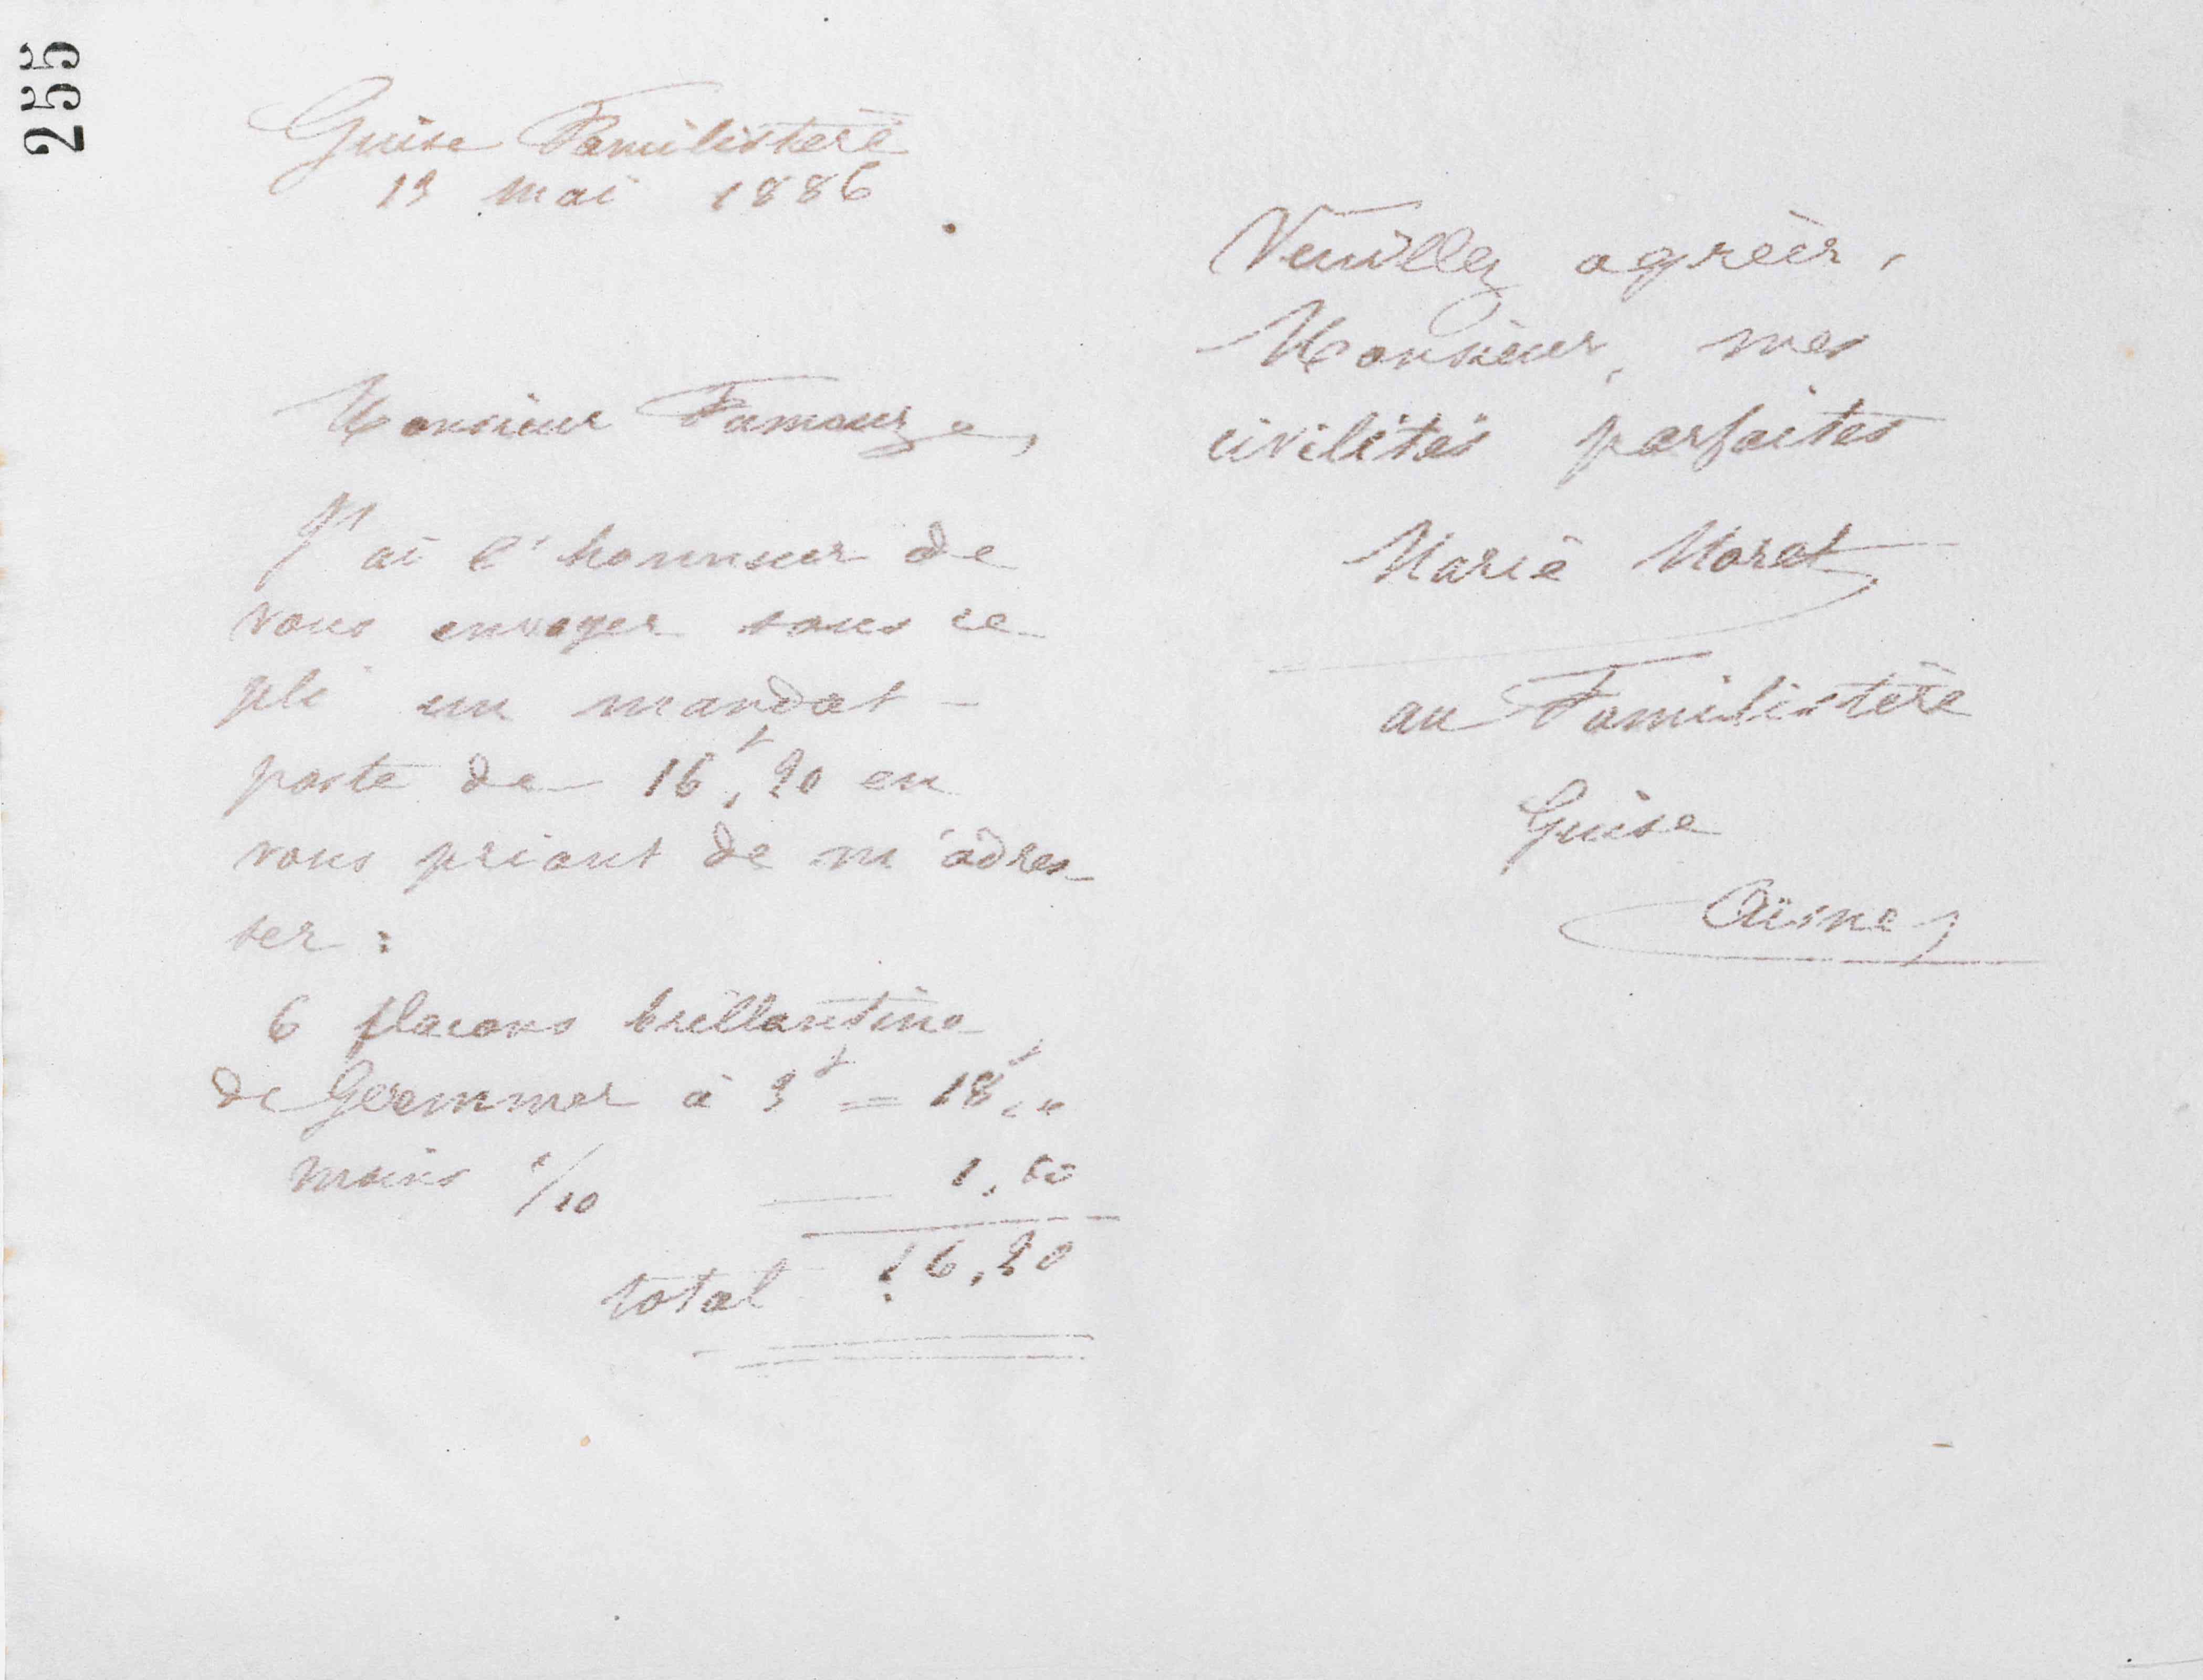 255
Guise Familistère
13 mai 1886
Monsieur Fumouze,
J'ai l'honneur de
vous envoyer sous ce
pli un mandat-
poste de 16f,20 en
vous priant de m'adres-
ser :
6 flacons brillantine
de à 3f = 18f,"
moins 1/10 1,80
total 16,20
Veuillez agréer,
Monsieur, mes
civilités parfaites
Marie Moret
au Familistère
Guise
Aisne